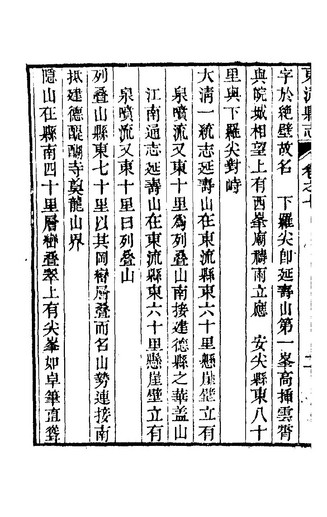 東流縣志 卷之七
字於絶壁故名　下羅尖即延壽山第一峯高插雲霄
與院城相望上有西峯廟禱雨立應　安尖縣東八十
里與下羅尖對峙
大清一統志延壽山在東流縣東六十里懸崖壁立有
泉噴流又東十里爲列叠山南接建德縣之華蓋山
江南通志延壽山在東流縣東六十里懸崖壁立有
泉噴流又東十里曰列叠山
列叠山縣東七十里以其岡巒層叠而名山勢連接南
抵建德醍醐寺莫龍山界
隱山在縣南四十里層巒叠翠上有尖峯如卓筆直聳